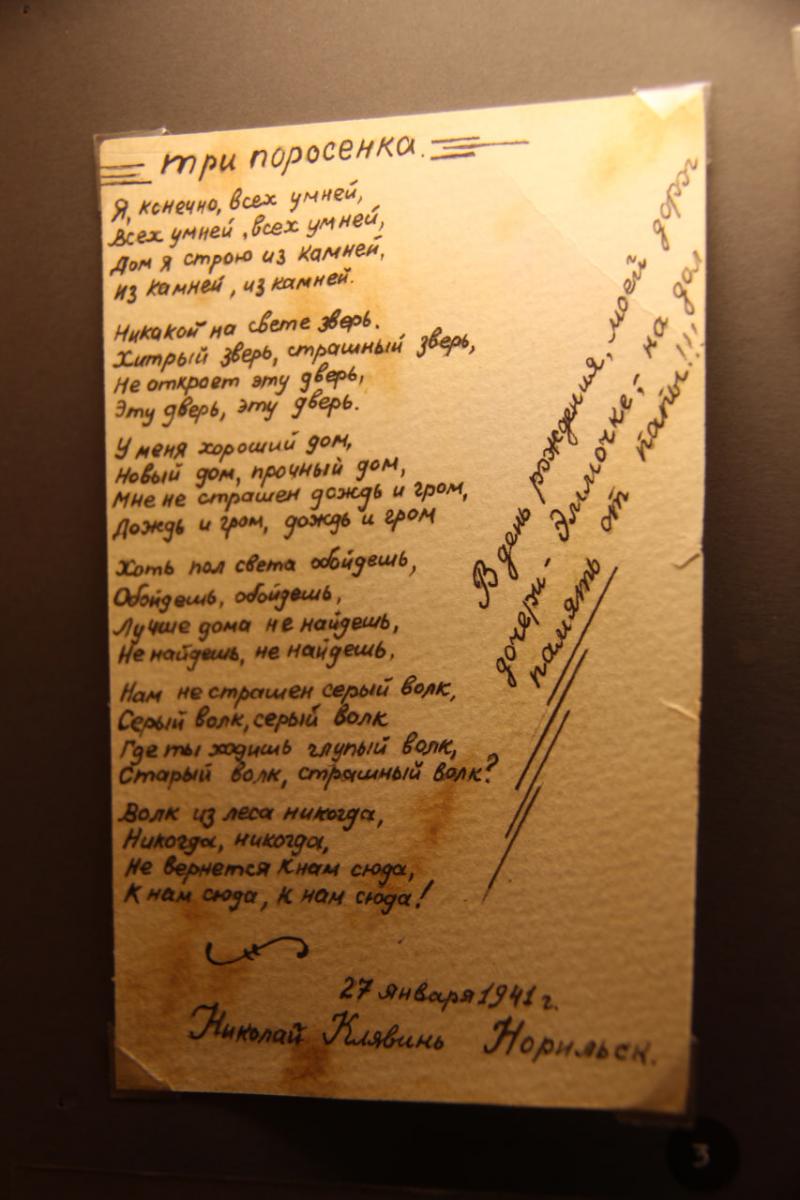 три поросенка.
Я, конечно, всех умней,
Всех умней, всех умней,
Дом я строю из камней,
Из камней, из камней.
Никакой на свете зверь.
Хитрый зверь, страшный зверь,
Не откроет эту дверь,
Эту дверь, эту дверь.
У меня хороший дом,
Новый дом, прочный дом,
Мне не страшен дождь и гром,
Дождь и гром, дождь и гром
Хоть пол света обойдешь,
Обойдешь, обойдешь,
Лучше дома не найдешь,
Не найдешь, не найдешь.
Нам не страшен серый волк,
Серый волк, серый волк
Где ты ходишь глупый волк,
Старый волк, страшный волк?
Волк из леса никогда,
Никогда, никогда,
Не вернется К нам сюда,
К нам сюда, К нам сюда!
27 января 1941 г.
Николай Клявинь Норильск.
В день рождения, моей дорог
дочери - Элимочке, - на дол
память от папы!!!
3